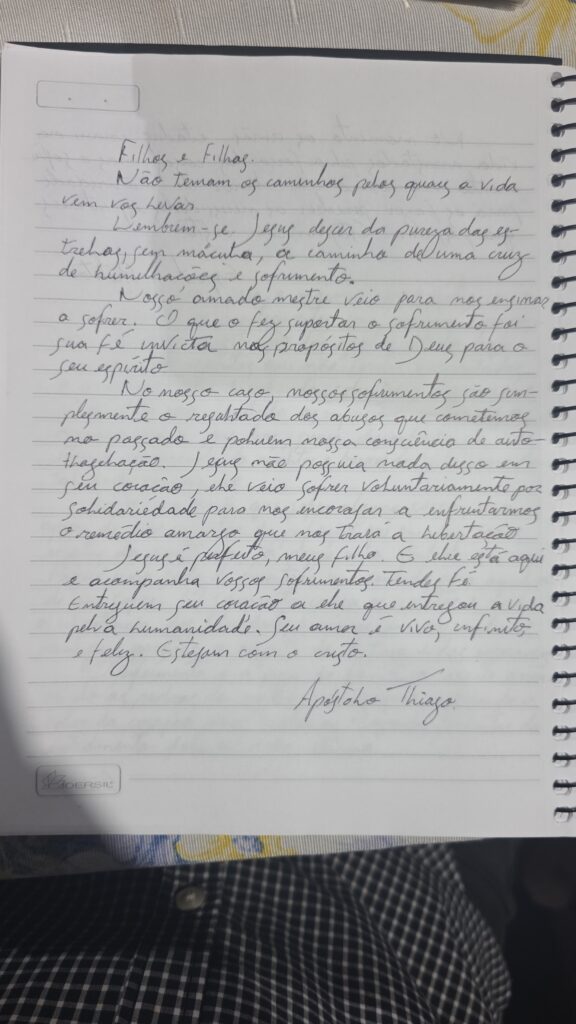 Filhos e Filhas.
Não temam os caminhos pelos quais a vida
vem vos levar.
Lembrem-se Jesus descer da pureza das es-
trelhas, sem mácula, a caminho de uma cruz
de humilhações e sofrimento.
Nosso amado mestre veio para nos ensinar
a sofrer. O que o fez suportar o sofrimento foi
sua fé invicta nos propósitos de Deus para o
seu espírito
No nosso caso, nossos sofrimentos são sim-
plesmente o resultado dos abusos que cometemos
no passado e poluem nossa consciência de auto-
flagelação. Jesus não possuia nada disso em
seu coração, ele veio sofrer voluntariamente por
solidariedade para nos encorajar a enfrentarmos
o remédio amargo que nos trará a libertação
Jesus é perfeito, meus filho. E ele está aqui
e acompanha vossos sofrimentos. Tendes fé.
Entreguem seu coração a ele que entregou a vida
pela humanidade. Seu amor é vivo, infinito,
e feliz. Estejam com o cristo.
Apóstolo Thiago.